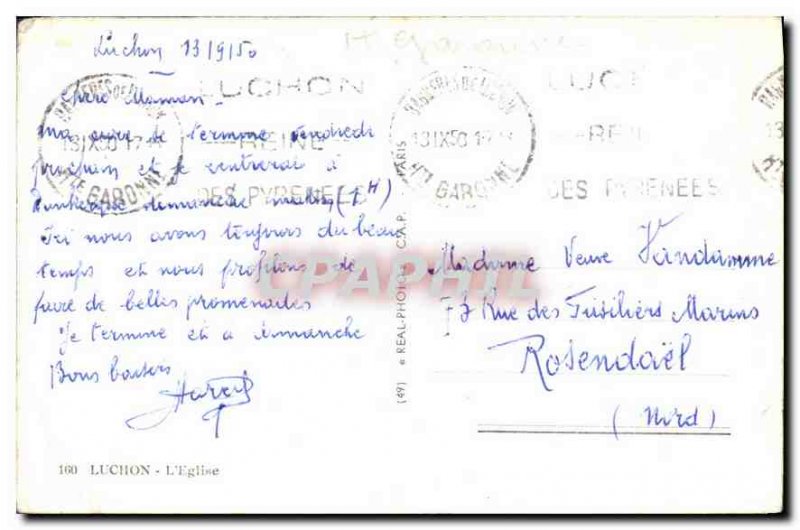 Luchon 13/9/50
Chère Maman
Ma cure se termine vendredi
prochain et je rentrerai à
Dunkerque dimanche matin (7H)
Ici nous avons toujours du beau
temps et nous profitons de
faire de belles promenades
Je termine et a dimanche
Bons baisers
160 LUCHON - L'Eglise
(49) « REAL-PHOTO » C.A.P. PARIS
BAGNERES DE LUCHON
13 IX 50
HTE GARONNE
LUCHON
REINE
DES PYRENEES
BAGNERES DE LUCHON
13 IX 50
HTE GARONNE
LUC
REI
DES PYRENEES
H. Garonne
Madame Veuve Vandamme
73 Rue des Fusiliers Marins
Rosendaël
(Nord)
CPAPHIL